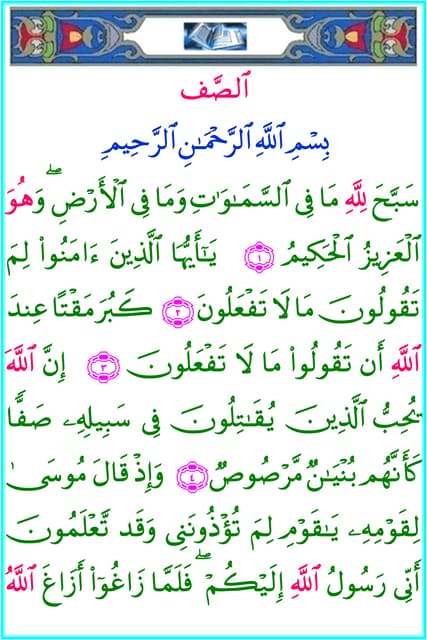 ٱلصَّف
بِسْمِ ٱللَّهِ ٱلرَّحْمَـٰنِ ٱلرَّحِيمِ
سَبَّحَ لِلَّهِ مَا فِى ٱلسَّمَـٰوَٰتِ وَمَا فِى ٱلْأَرْضِ ۖ وَهُوَ
ٱلْعَزِيزُ ٱلْحَكِيمُ ١ يَـٰٓأَيُّهَا ٱلَّذِينَ ءَامَنُوا۟ لِمَ
تَقُولُونَ مَا لَا تَفْعَلُونَ ٢ كَبُرَ مَقْتًا عِندَ
ٱللَّهِ أَن تَقُولُوا۟ مَا لَا تَفْعَلُونَ ٣ إِنَّ ٱللَّهَ
يُحِبُّ ٱلَّذِينَ يُقَـٰتِلُونَ فِى سَبِيلِهِۦ صَفًّا
كَأَنَّهُم بُنْيَـٰنٌ مَّرْصُوصٌ ٤ وَإِذْ قَالَ مُوسَىٰ
لِقَوْمِهِۦ يَـٰقَوْمِ لِمَ تُؤْذُونَنِى وَقَد تَّعْلَمُونَ
أَنِّى رَسُولُ ٱللَّهِ إِلَيْكُمْ ۖ فَلَمَّا زَاغُوٓا۟ أَزَاغَ ٱللَّهُ